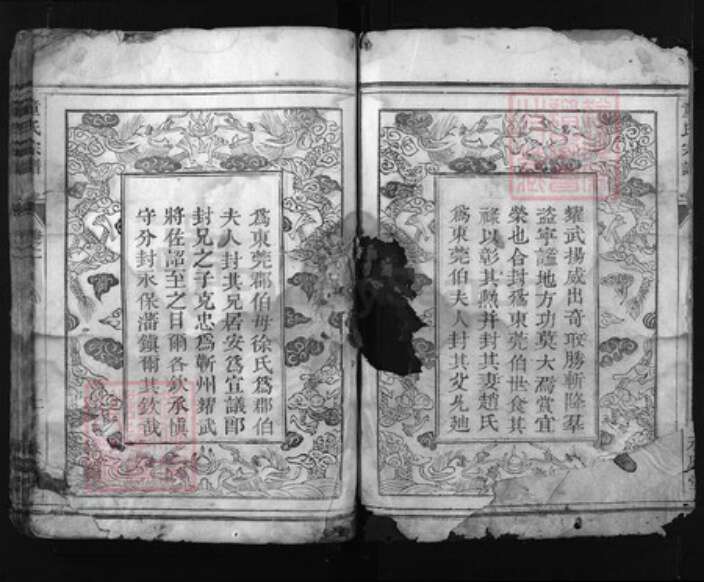 耀武揚威出奇取勝斬降羣
盜寧謐地方功莫大焉賞宜
榮也合封爲東莞伯世食其
祿以彰其勲并封其妻趙氏
爲東莞伯夫人封其父允迪
爲東莞郡伯母徐氏爲郡伯
夫人封其兄居安爲宣議郎
封兄之子克忠爲靳州耀武
將佐詔至之日爾各欽承愼
守分封永保藩鎮爾其欽哉